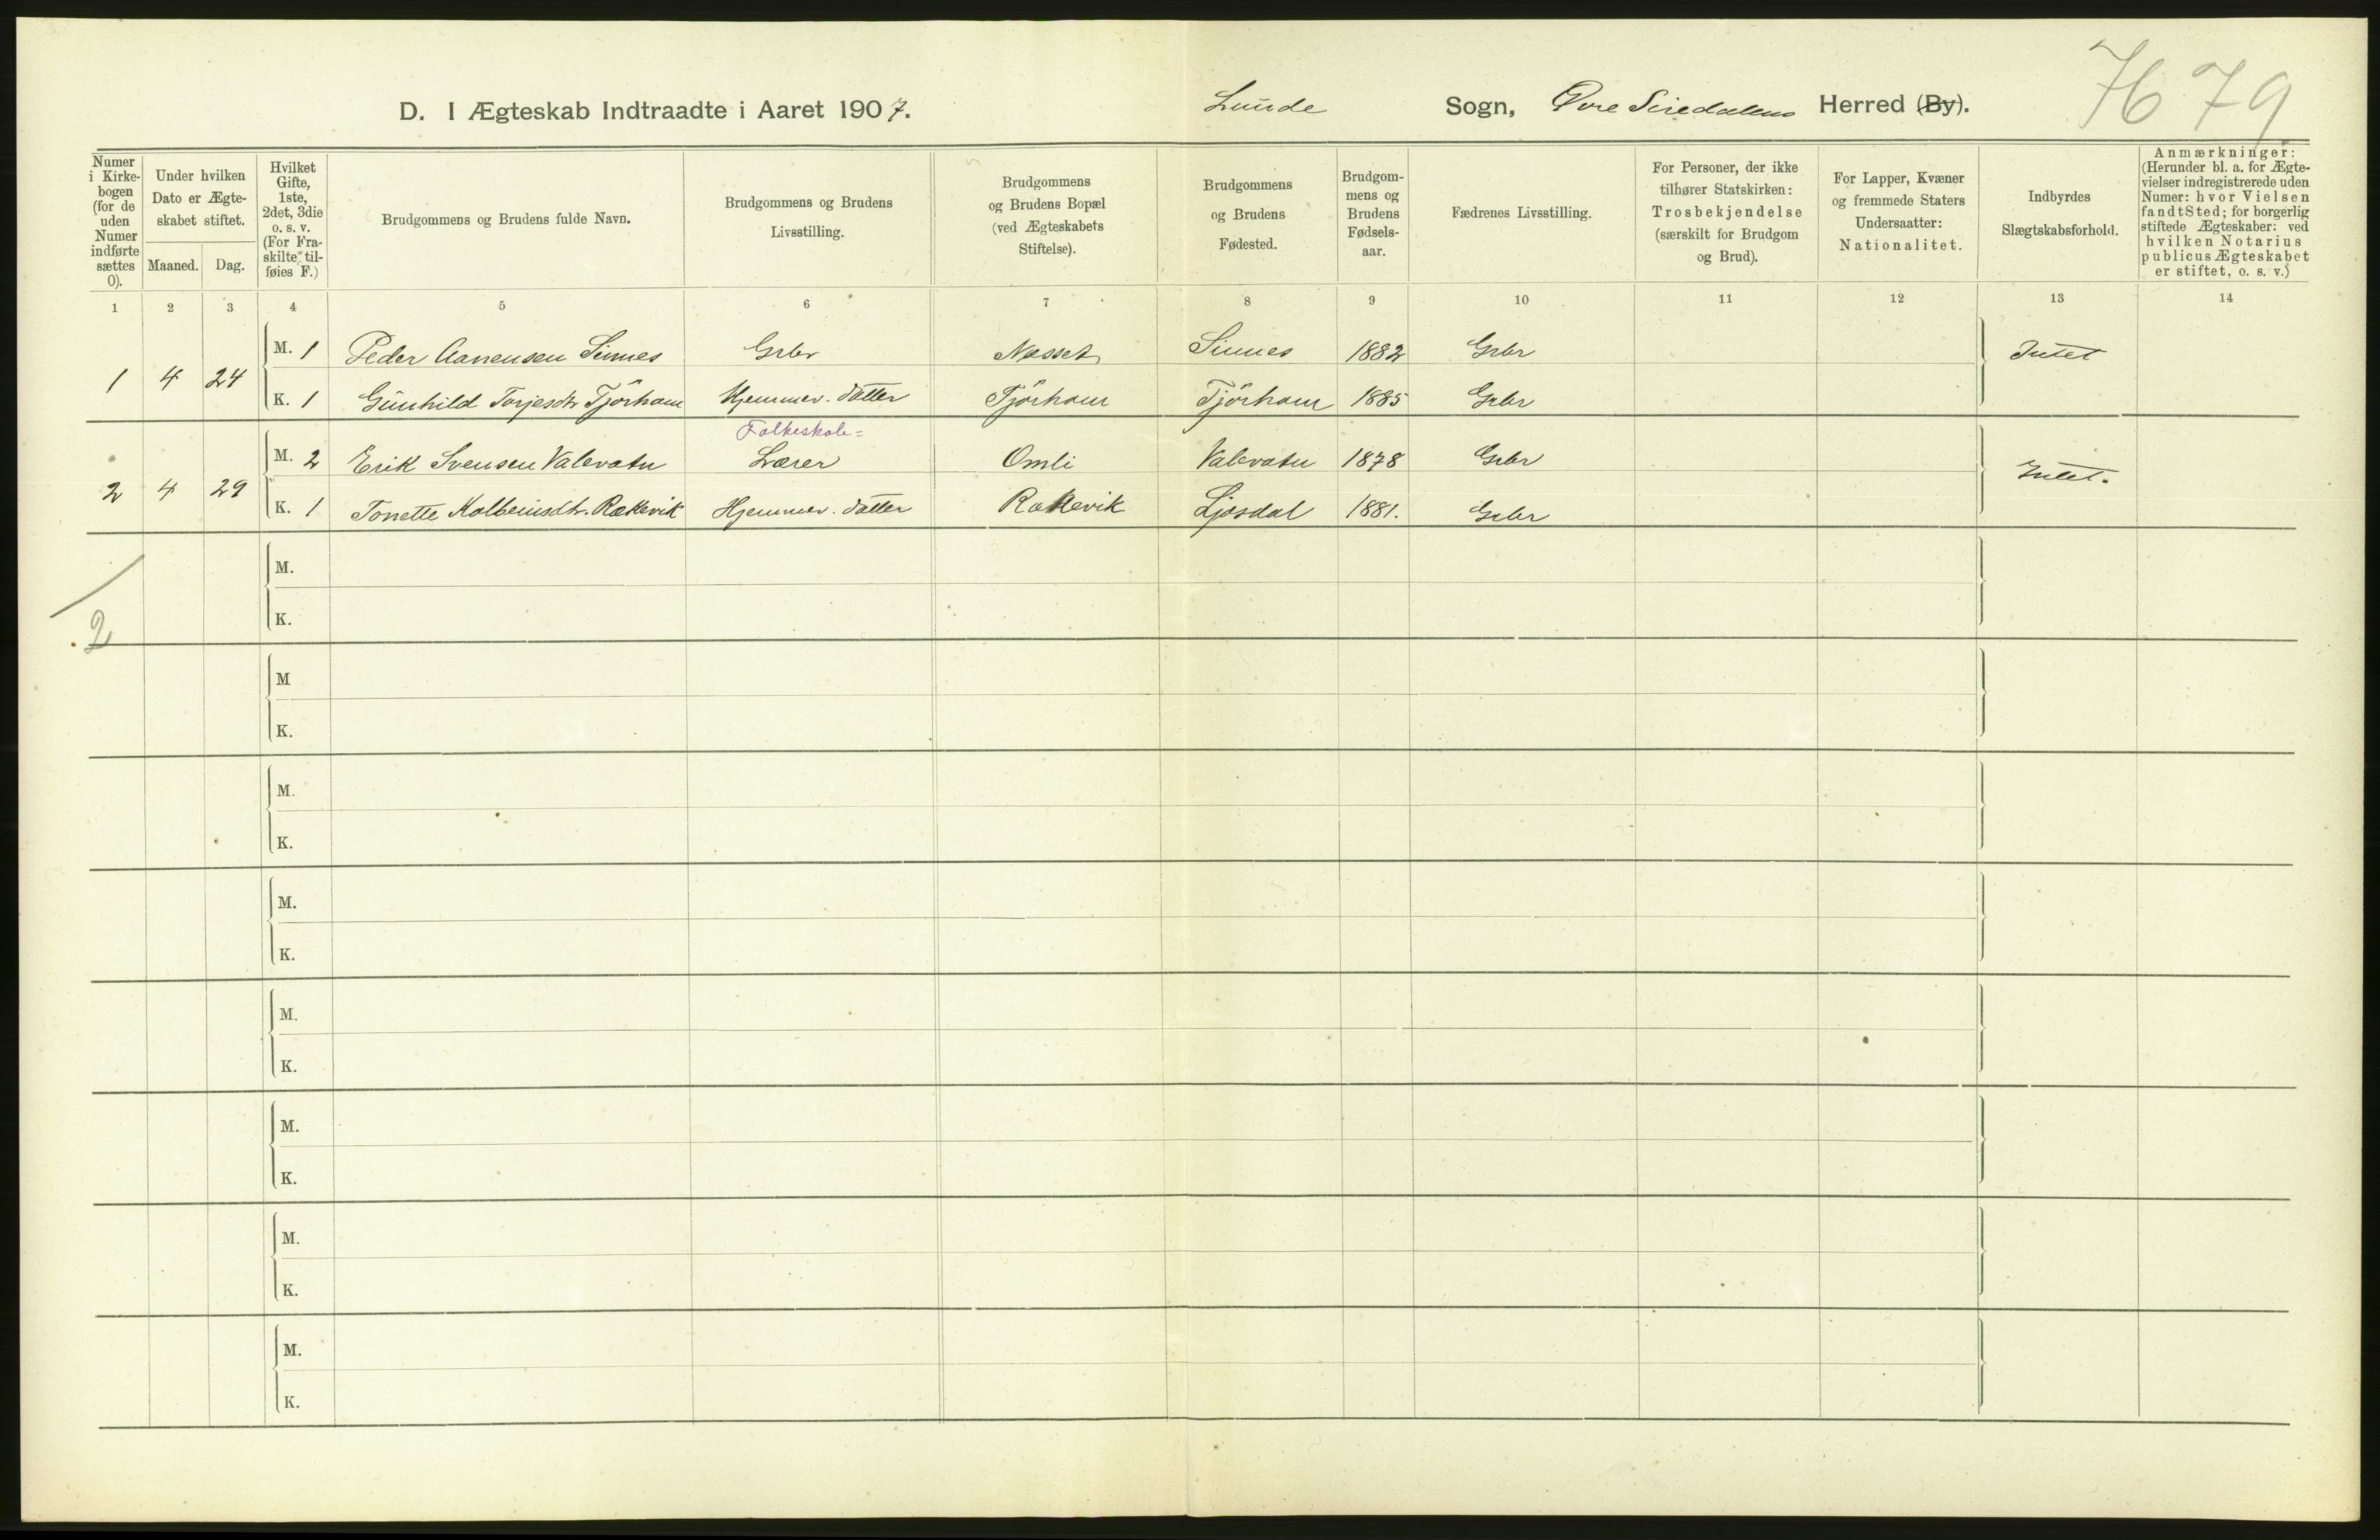 D. I Ægteskab Indtraadte i Aaret 1907. Lunde Sogn, Øvre Siredalens Herred (By). 7679
Numer i Kirkebogen (for de uden Numer indførte sættes 0).
Under hvilken Dato er Ægteskabet stiftet.
Maaned. Dag.
Hvilket Gifte, 1ste, 2det, 3die o. s. v. (For Fraskilte tilføies F.)
Brudgommens og Brudens fulde Navn.
Brudgommens og Brudens Livsstilling.
Brudgommens og Brudens Bopæl (ved Ægteskabets Stiftelse).
Brudgommens og Brudens Fødested.
Brudgommens og Brudens Fødselsaar.
Fædrenes Livsstilling.
For Personer, der ikke tilhører Statskirken: Trosbekjendelse (særskilt for Brudgom og Brud).
For Lapper, Kvæner og fremmede Staters Undersaatter: Nationalitet.
Indbyrdes Slægtskabsforhold.
Anmærkninger: (Herunder bl. a. for Ægtevielser indregistrerede uden Numer: hvor Vielsen fandt Sted; for borgerlig stiftede Ægteskaber: ved hvilken Notarius publicus Ægteskabet er stiftet, o. s. v.)
1 2 3 4 5 6 7 8 9 10 11 12 13 14
1 4 24 M. 1 Peder Aanensen Sinnes Grbr Nesset Sinnes 1882 Grbr Intet
K. 1 Gunhild Torjesdtr Tjørhom Hjemmev. datter Tjørhom Tjørhom 1885 Grbr
Folkeskole=
2 4 29 M. 2 Erik Svensen Valevatn Lærer Omli Valevatn 1878 Grbr Intet.
K. 1 Tonette Kolbeinsdtr. Røkevik Hjemmev. datter Røkevik Ljosdal 1881. Grbr
M.
K.
2
M
K.
M.
K.
M.
K.
M.
K.
M.
K.
M.
K.
M.
K.